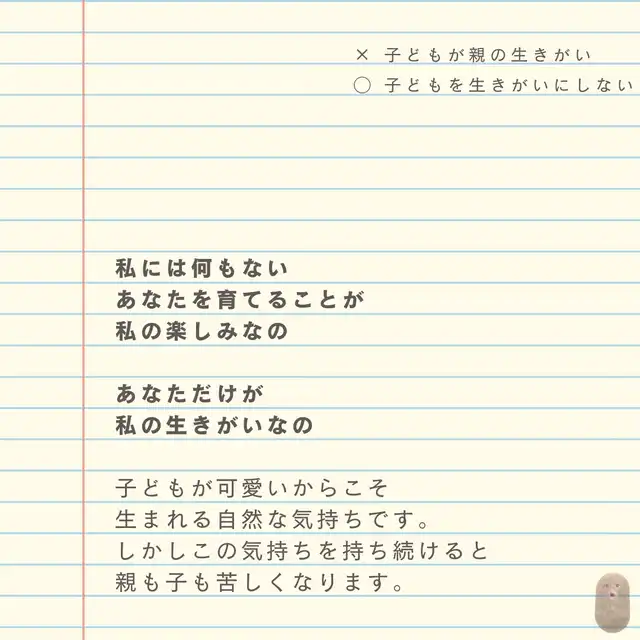 × 子どもが親の生きがい
○ 子どもを生きがいにしない
私には何もない
あなたを育てることが
私の楽しみなの
あなただけが
私の生きがいなの
子どもが可愛いからこそ
生まれる自然な気持ちです。
しかしこの気持ちを持ち続けると
親も子も苦しくなります。